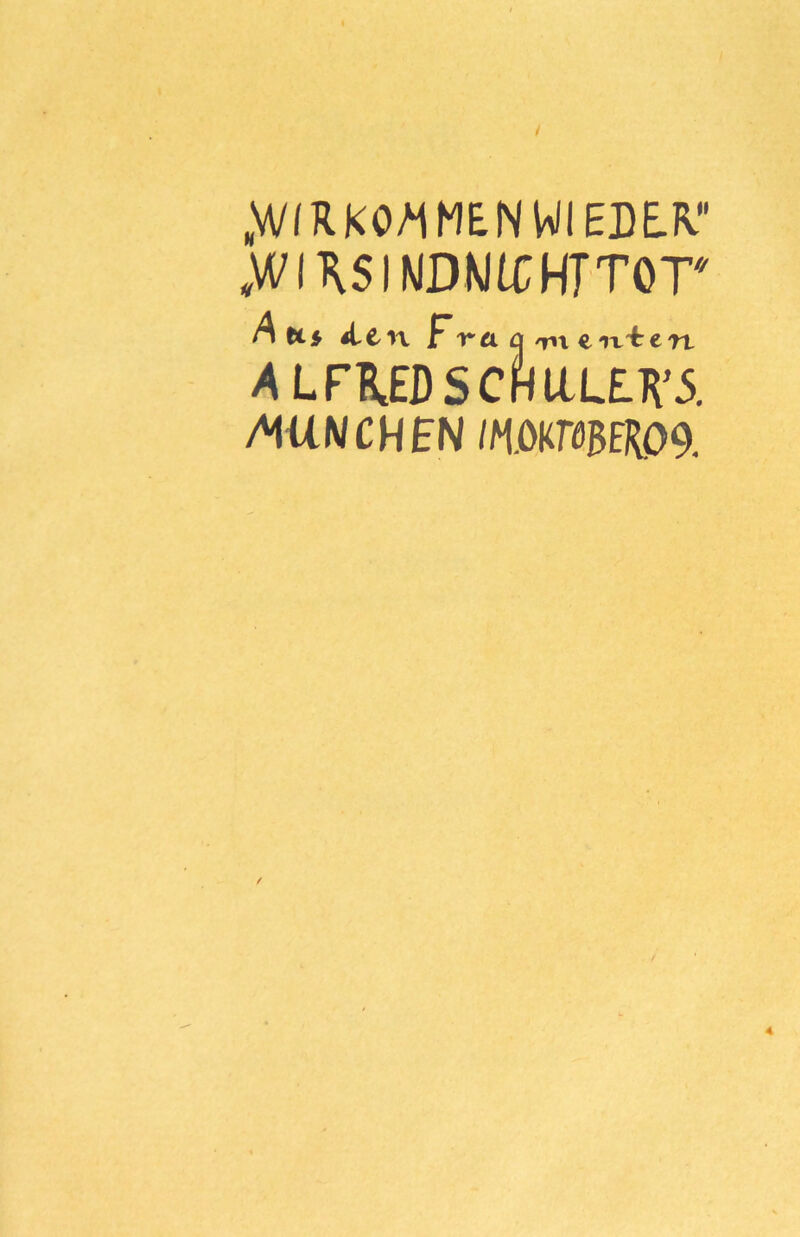 „WIR KOMMEN WIEDER"
„WIR SIND NICHT TOT"
Aus den Fragmenten
ALFRED SCHULER'S.
MUNCHEN IM.OKTOBER.09.